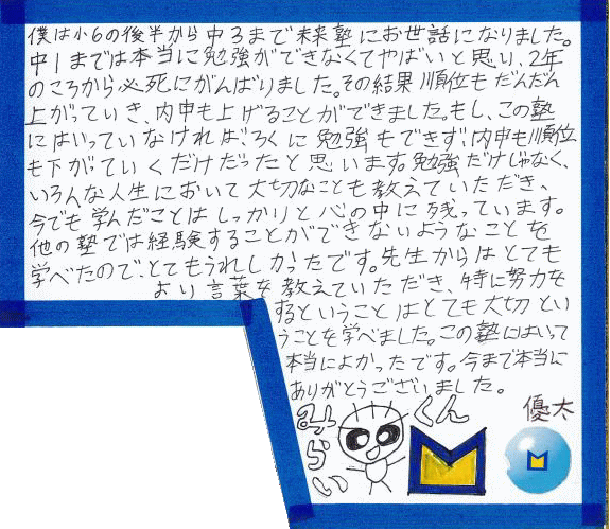 僕は小6の後半から中3まで未来塾にお世話になりました。
中1までは本当に勉強ができなくてやばいと思い、2年
のころから必死にがんばりました。その結果順位もだんだん
上がっていき、内申も上げることができました。もし、この塾
にはいっていなければ、ろくに勉強もできず、内申も順位
も下がっていくだけだったと思います。勉強だけじゃなく、
いろんな人生において大切なことも教えていただき、
今でも学んだことはしっかりと心の中に残っています。
他の塾では経験することができないようなことを
学べたので、とてもうれしかったです。先生からはとても
よい言葉を教えていただき、特に努力を
するということはとても大切とい
うことを学べました。この塾にはいって
本当によかったです。今まで本当に
ありがとうございました。
みらい くん
優太